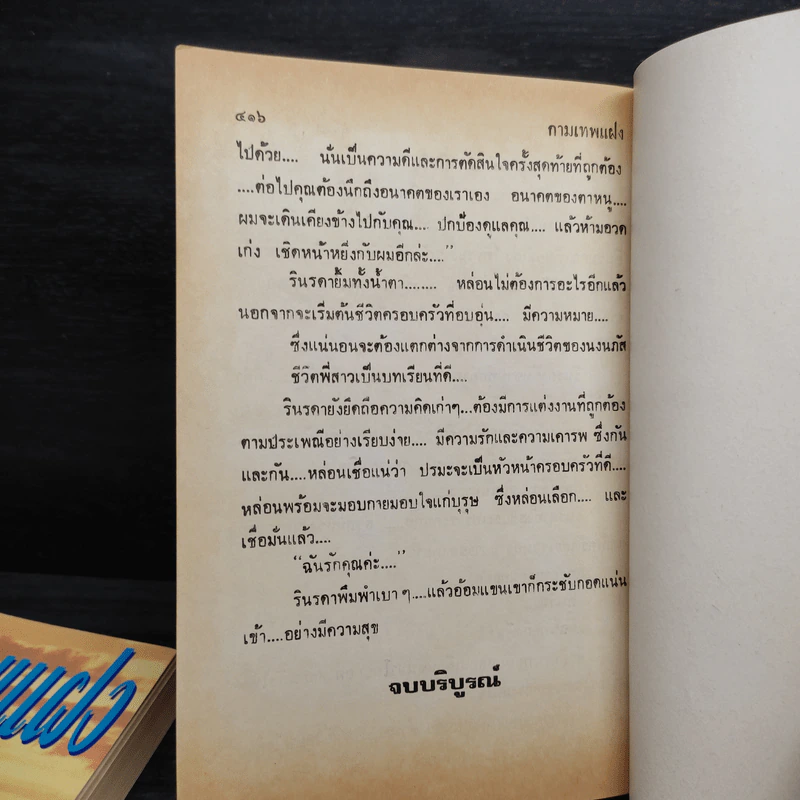 ๔๑๖
กามเทพแฝง
ไปด้วย.... นั่นเป็นความดีและการตัดสินใจครั้งสุดท้ายที่ถูกต้อง
....ต่อไปคุณต้องนึกถึงอนาคตของเราเอง อนาคตของตาหนู....
ผมจะเดินเคียงข้างไปกับคุณ.... ปกป้องดูแลคุณ.... แล้วห้ามอวด
เก่ง เชิดหน้าหยิ่งกับผมอีกล่ะ....”
รินรดายิ้มทั้งน้ำตา........ หล่อนไม่ต้องการอะไรอีกแล้ว
นอกจากจะเริ่มต้นชีวิตครอบครัวที่อบอุ่น.... มีความหมาย....
ซึ่งแน่นอนจะต้องแตกต่างจากการดำเนินชีวิตของนงนภัส
ชีวิตพี่สาวเป็นบทเรียนที่ดี....
รินรดายังยึดถือความคิดเก่าๆ...ต้องมีการแต่งงานที่ถูกต้อง
ตามประเพณีอย่างเรียบง่าย.... มีความรักและความเคารพ ซึ่งกัน
และกัน....หล่อนเชื่อแน่ว่า ปรมะจะเป็นหัวหน้าครอบครัวที่ดี....
หล่อนพร้อมจะมอบกายมอบใจแก่บุรุษ ซึ่งหล่อนเลือก.... และ
เชื่อมั่นแล้ว....
“ฉันรักคุณค่ะ....”
รินรดาพึมพำเบา ๆ....แล้วอ้อมแขนเขาก็กระชับกอดแน่น
เข้า....อย่างมีความสุข
จบบริบูรณ์